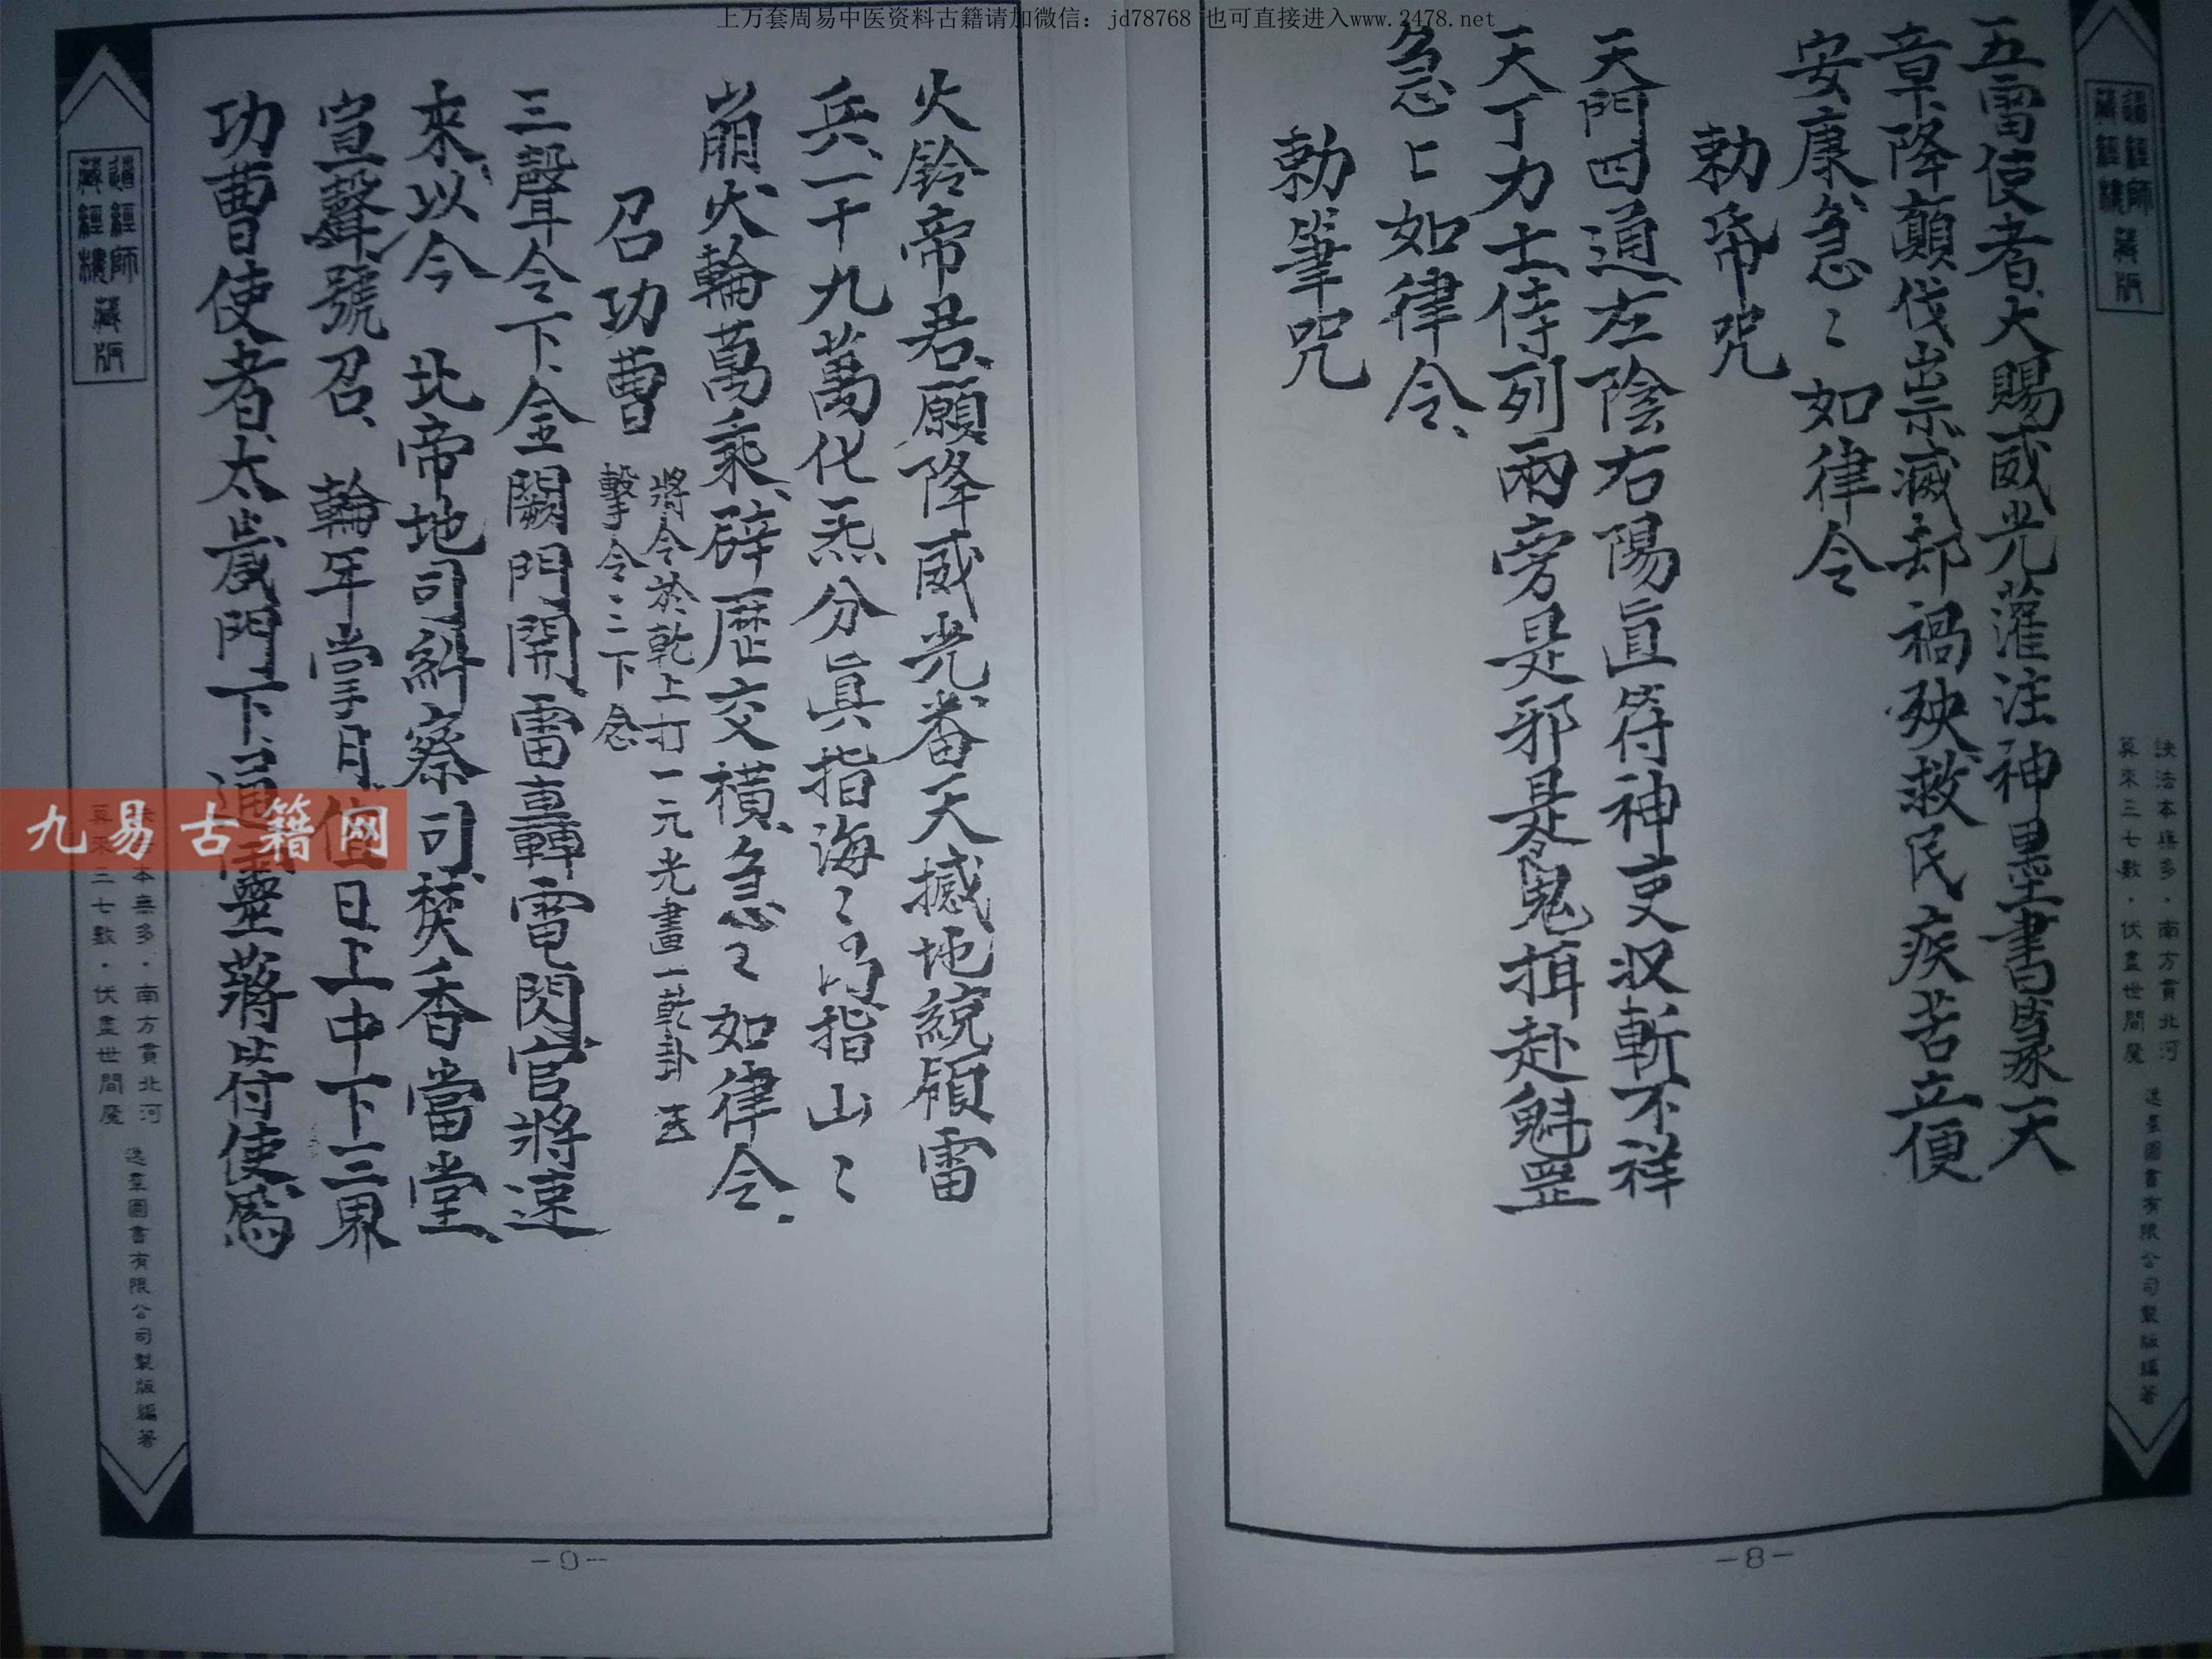 上万套周易中医资料古籍请加微信：jd78768 也可直接进入www.2478.net
道經師
藏經樓
藏版
訣法本無多·南方貫北河
算來三七數·伏盡世間魔
逸羣圖書有限公司製版編著
五雷使者、大賜威光灌注神墨書篆天
章、降顛伐祟滅却禍殃、救民疾苦立便
安康、急〻如律令
勅帋咒
天門四道左陰右陽直符神吏収斬不祥
天丁力士侍列兩旁是邪是鬼揖赴魁罡
急〻如律令、
勅筆咒
-8-
火鈴帝君、願降威光、番天撼地統領雷
兵、一十九萬化炁分眞指海〻指山〻
崩、火輪萬乘、辟歷交橫、急〻如律令、
召功曹
將令於乾上打一元光畫一乾卦
擊令·三下念
三聲令下、金闕門開雷轟電閃、官將速
來、以今 北帝地司糾察司、焚香當堂、
宣聲號召、輪年掌月值日上中下三界
功曹使者、太歲門下、通靈蔣符使、爲
九易古籍网
道經師
藏經樓
藏版
本無多·南方貫北河
算來三七數·伏盡世間魔
逸羣圖書有限公司製版編著
-9-